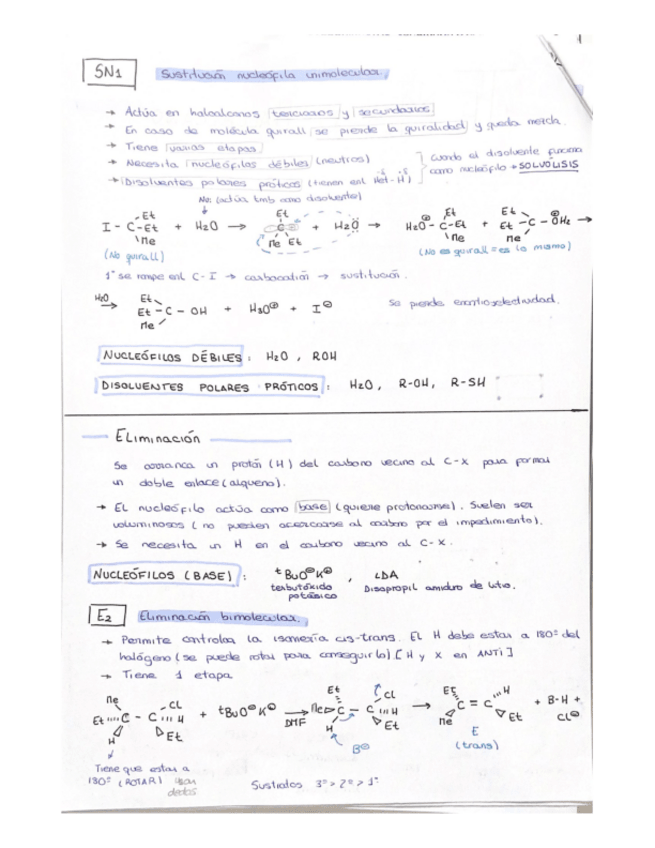 SN1 Sustitución nucleófila unimolecular.
→ Actúa en haloalcanos terciarios y secundarios
→ En caso de molécula quirall se pierde la quiralidad y queda mezcla.
→ Tiene varias etapas
→ Necesita nucleófilos débiles (neutros)
→ Disolventes polares próticos (tienen enl Het-H)
Cuando el disolvente funciona
como nucleófilo → SOLVÓLISIS
Nu: (actúa tmb como disolvente)
I - C - Et + H2O → C + H2O → H2O - C - Et + Et - C - OH2 →
(No quirall)
(No es quirall = es lo mismo)
1º se rompe enl C-I → carbocatión → sustitución.
H2O → Et - C - OH + H3O⊕ + I⊖
Se pierde enantioselectividad.
NUCLEÓFILOS DÉBILES: H2O, ROH
DISOLVENTES POLARES PRÓTICOS: H2O, R-OH, R-SH
ELiminación
Se arranca un protón (H) del carbono vecino al C-X para formar
un doble enlace (alqueno).
→ EL nucleófilo actúa como base (quiere protonarse). Suelen ser
voluminosos (no pueden acercarse al carbono por el impedimento).
→ Se necesita un H en el carbono vecino al C-X.
NUCLEÓFILOS (BASE): tBuO⊖K⊕, LDA
terbutóxido potásico
Diisopropil amiduro de litio.
E2 Eliminación bimolecular.
→ Permite controlar la isomería cis-trans. EL H debe estar a 180º del
halógeno (se puede rotar para conseguirlo) [H y X en ANTI]
→ Tiene 1 etapa
Me Et H C - C Cl H Et + tBuO⊖K⊕ → DMF Et Me C - C Cl H Et → Et Me C = C H Et + B-H + Cl⊖
B⊖
E
(trans)
Tiene que estar a
180º (ROTAR)
Sustratos 3º > 2º > 1º